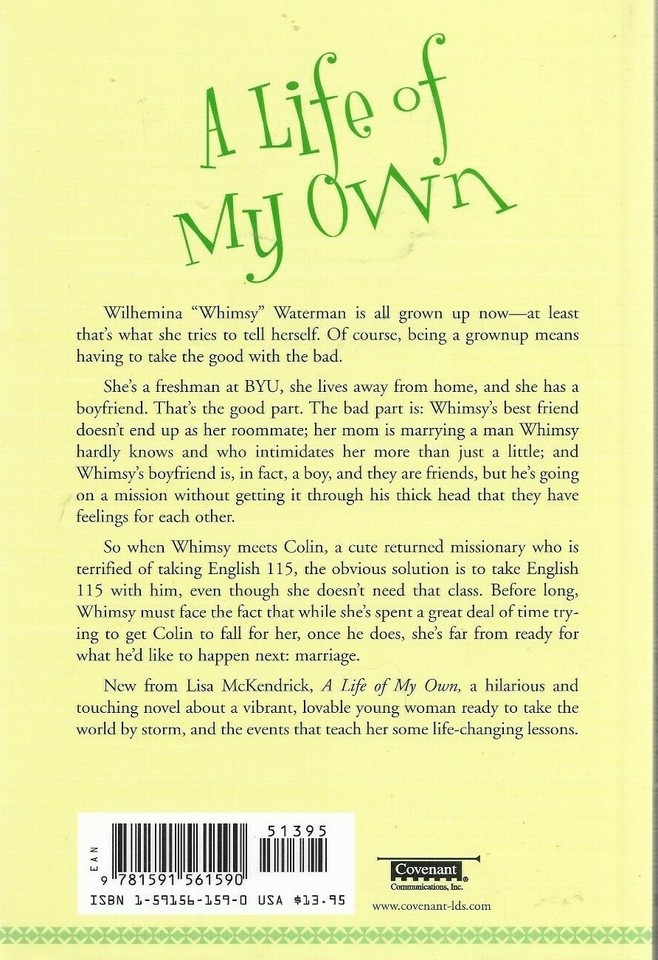 A Life of
My Own
Wilhemina “Whimsy” Waterman is all grown up now—at least
that’s what she tries to tell herself. Of course, being a grownup means
having to take the good with the bad.
She’s a freshman at BYU, she lives away from home, and she has a
boyfriend. That’s the good part. The bad part is: Whimsy’s best friend
doesn’t end up as her roommate; her mom is marrying a man Whimsy
hardly knows and who intimidates her more than just a little; and
Whimsy’s boyfriend is, in fact, a boy, and they are friends, but he’s going
on a mission without getting it through his thick head that they have
feelings for each other.
So when Whimsy meets Colin, a cute returned missionary who is
terrified of taking English 115, the obvious solution is to take English
115 with him, even though she doesn’t need that class. Before long,
Whimsy must face the fact that while she’s spent a great deal of time try-
ing to get Colin to fall for her, once he does, she’s far from ready for
what he’d like to happen next: marriage.
New from Lisa McKendrick, A Life of My Own, a hilarious and
touching novel about a vibrant, lovable young woman ready to take the
world by storm, and the events that teach her some life-changing lessons.
51395
EAN
9 781591 561590
ISBN 1-59156-159-0 USA $13.95
Covenant
Communications, Inc.
www.covenant-lds.com